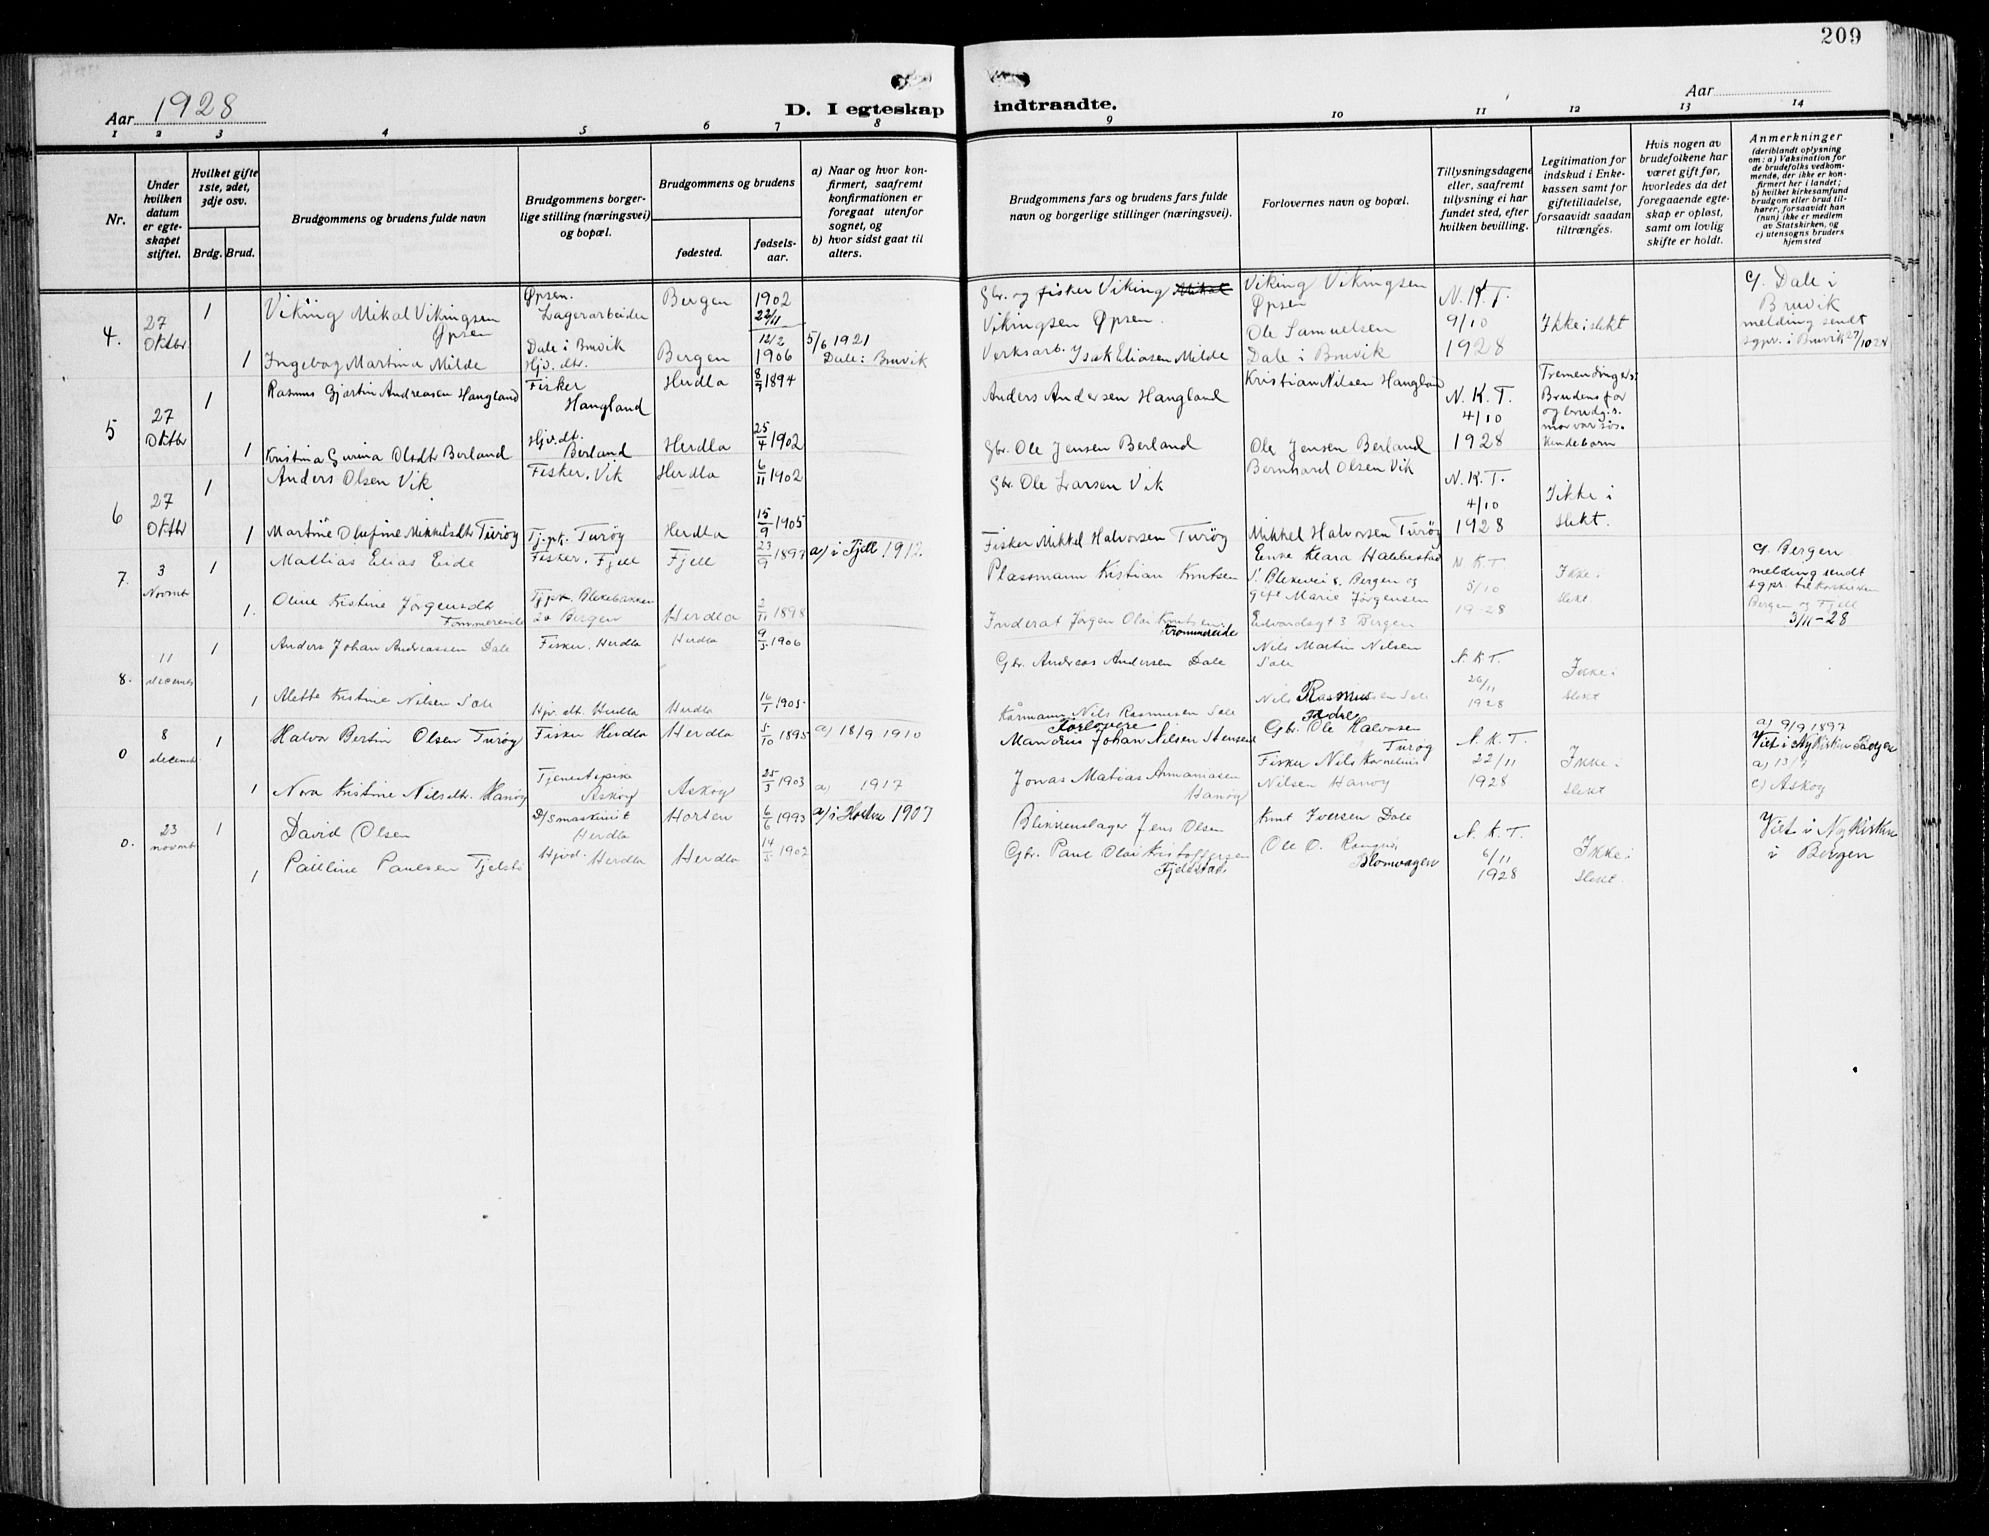 209
Aar 1928
D. I egteskap indtraadte.
Aar
1 2 3 4 5 6 7 8 9 10 11 12 13 14
Nr.
Under hvilken datum er egteskapet stiftet.
Hvilket gifte 1ste, 2det, 3dje osv.
Brdg. Brud.
Brudgommens og brudens fulde navn
Brudgommens borgerlige stilling (næringsvei) og bopæl.
Brudgommens og brudens
fødested.
fødselsaar.
a) Naar og hvor konfirmert, saafremt konfirmationen er foregaat utenfor sognet, og
b) hvor sidst gaat til alters.
Brudgommens fars og brudens fars fulde navn og borgerlige stillinger (næringsvei).
Forlovernes navn og bopæl.
Tillysningsdagene eller, saafremt tillysning ei har fundet sted, efter hvilken bevilling.
Legitimation for indskud i Enkekassen samt for giftetilladelse, forsaavidt saadan tiltrænges.
Hvis nogen av brudefolkene har været gift før, hvorledes da det foregaaende egteskap er opløst, samt om lovlig skifte er holdt.
Anmerkninger (deriblandt oplysning om: a) Vaksination for de brudefolks vedkommende, der ikke er konfirmert her i landet; b) hvilket kirkesamfund brudgom eller brud tilhører, forsaavidt han (hun) ikke er medlem av Statskirken, og c) utensogns bruders hjemsted
4. 27 Oktbr 1 Viking Mikal Vikingsen Øpsen
Øpsen. Lagerarbeider Bergen 1902 22/11
Gbr. og fisker Viking Vikingsen Øpsen.
Viking Vikingsen Øpsen
N.K.T. 9/10 1928
Ikke i slekt
c) Dale i Bruvik melding sendt sgpr. i Bruvik 27/10 28
1 Ingebog Martina Milde
Dale i Bruvik Hjv. dtr. Bergen 12/2 1906
5/6 1921 Dale i Bruvik
Verksarb. Isak Eliasen Milde
Ole Samuelsen Dale i Bruvik
5 27 Oktbr 1 Rasmus Gjertin Andreasen Hangland
Fisker Hangland Herdla 8/7 1894
Anders Andersen Hangland
Kristian Nilsen Hangland
N.K.T. 4/10 1928
Tremendinger: Brudens far og brudg.s. mor var søskendebarn
1 Kristina Gurina Olsdtr Berland
Hjv. dt. Berland Herdla 25/4 1902
Gbr. Ole Jensen Berland
Ole Jensen Berland
6 27 Oktbr 1 Anders Olsen Vik
Fisker, Vik Herdla 6/11 1902
Gbr. Ole Larsen Vik
Bernhard Olsen Vik
N.K.T. 4/10 1928
Ikke i slekt.
1 Martine Olufine Mikkelsdtr Turøg
Tj.pk. Turøg Herdla 15/9 1905
Fisker Mikkel Halvorsen Turøg
Mikkel Halvorsen Turøg
7. 3 Novmbr 1 Mathias Elias Eide
Fisker. Fjell Fjell 23/9 1897 a) i Fjell 1912.
Plassmann Kristian Knutsen
Enke Klara Halbestad
N.K.T. 5/10 1928
Ikke i slekt
c) Bergen melding sendt sgpr. til Korskirken Bergen og Fjell 3/11-28
1. Oline Kristine Jørgensdt Tommereide
Tj.pk. Blekebakken 20 Bergen Herdla 2/11 1898
Inderst Jørgen Olai Knutsen Trommereide
gift Marie Jørgensen Edvardsgt 3 Bergen
8. 11 decembr 1 Anders Johan Andreassen Dale
Fisker. Herdla Herdla 9/5 1906
Gbr. Andreas Andersen Dale
Nils Martin Nilsen Dale
N.K.T. 26/11 1928
Ikke i slekt
1 Alette Kristine Nilsen Dale
Hjv. dt. Herdla Herdla 16/1 1905
Kårmann Nils Rasmussen Dale
Nils Rasmussen Dale
0 8 decembr 1 Halvor Bertin Olsen Turøg
Fisker Herdla Herdla 5/10 1895 a) 18/9 1910
Forlovere Fædre
Mandrius Johan Nilsen Stensend
Gbr. Ole Halvosen Turøg
N.K.T. 22/11 1928
Ikke i slekt
a) 9/9 1897 Viet i Nykirken Bergen
1 Nora Kristine Nilsdtr. Hanøg
Tjenestepike Askøg Askøg 25/3 1903 a) 1917
Jonas Matias Ammaniasen Hanøg
Fisker Nils Kornelius Nilsen Hanøg
c) Askøg
0. 23 novmbr 1 David Olsen
D/S maskinist Herdla Horten 6/6 1993 a) i Horten 1907
Blikkenslager Jens Olsen
Knut Iversen Dale
N.K.T. 6/11 1928
Ikke i slekt.
Viet i Nykirken i Bergen
1 Pauline Paulsen Fjelstø
Hjvd. Herdla Herdla 14/5 1902
Gbr. Paul Olai Kristoffersen Fjeldstad
Ole O. Blomvagen